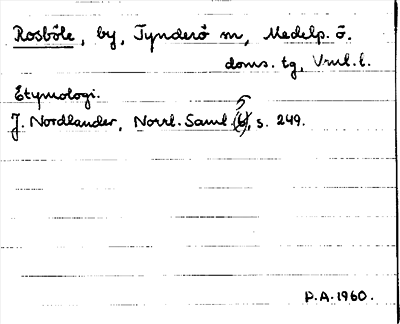 Rosböle, by, Tynderö sn, Medelp. ö.
doms. tg, Vnrl. l.
Etymologi.
J. Nordlander, Norrl. Saml. 5, s. 249.
P.A. 1960.